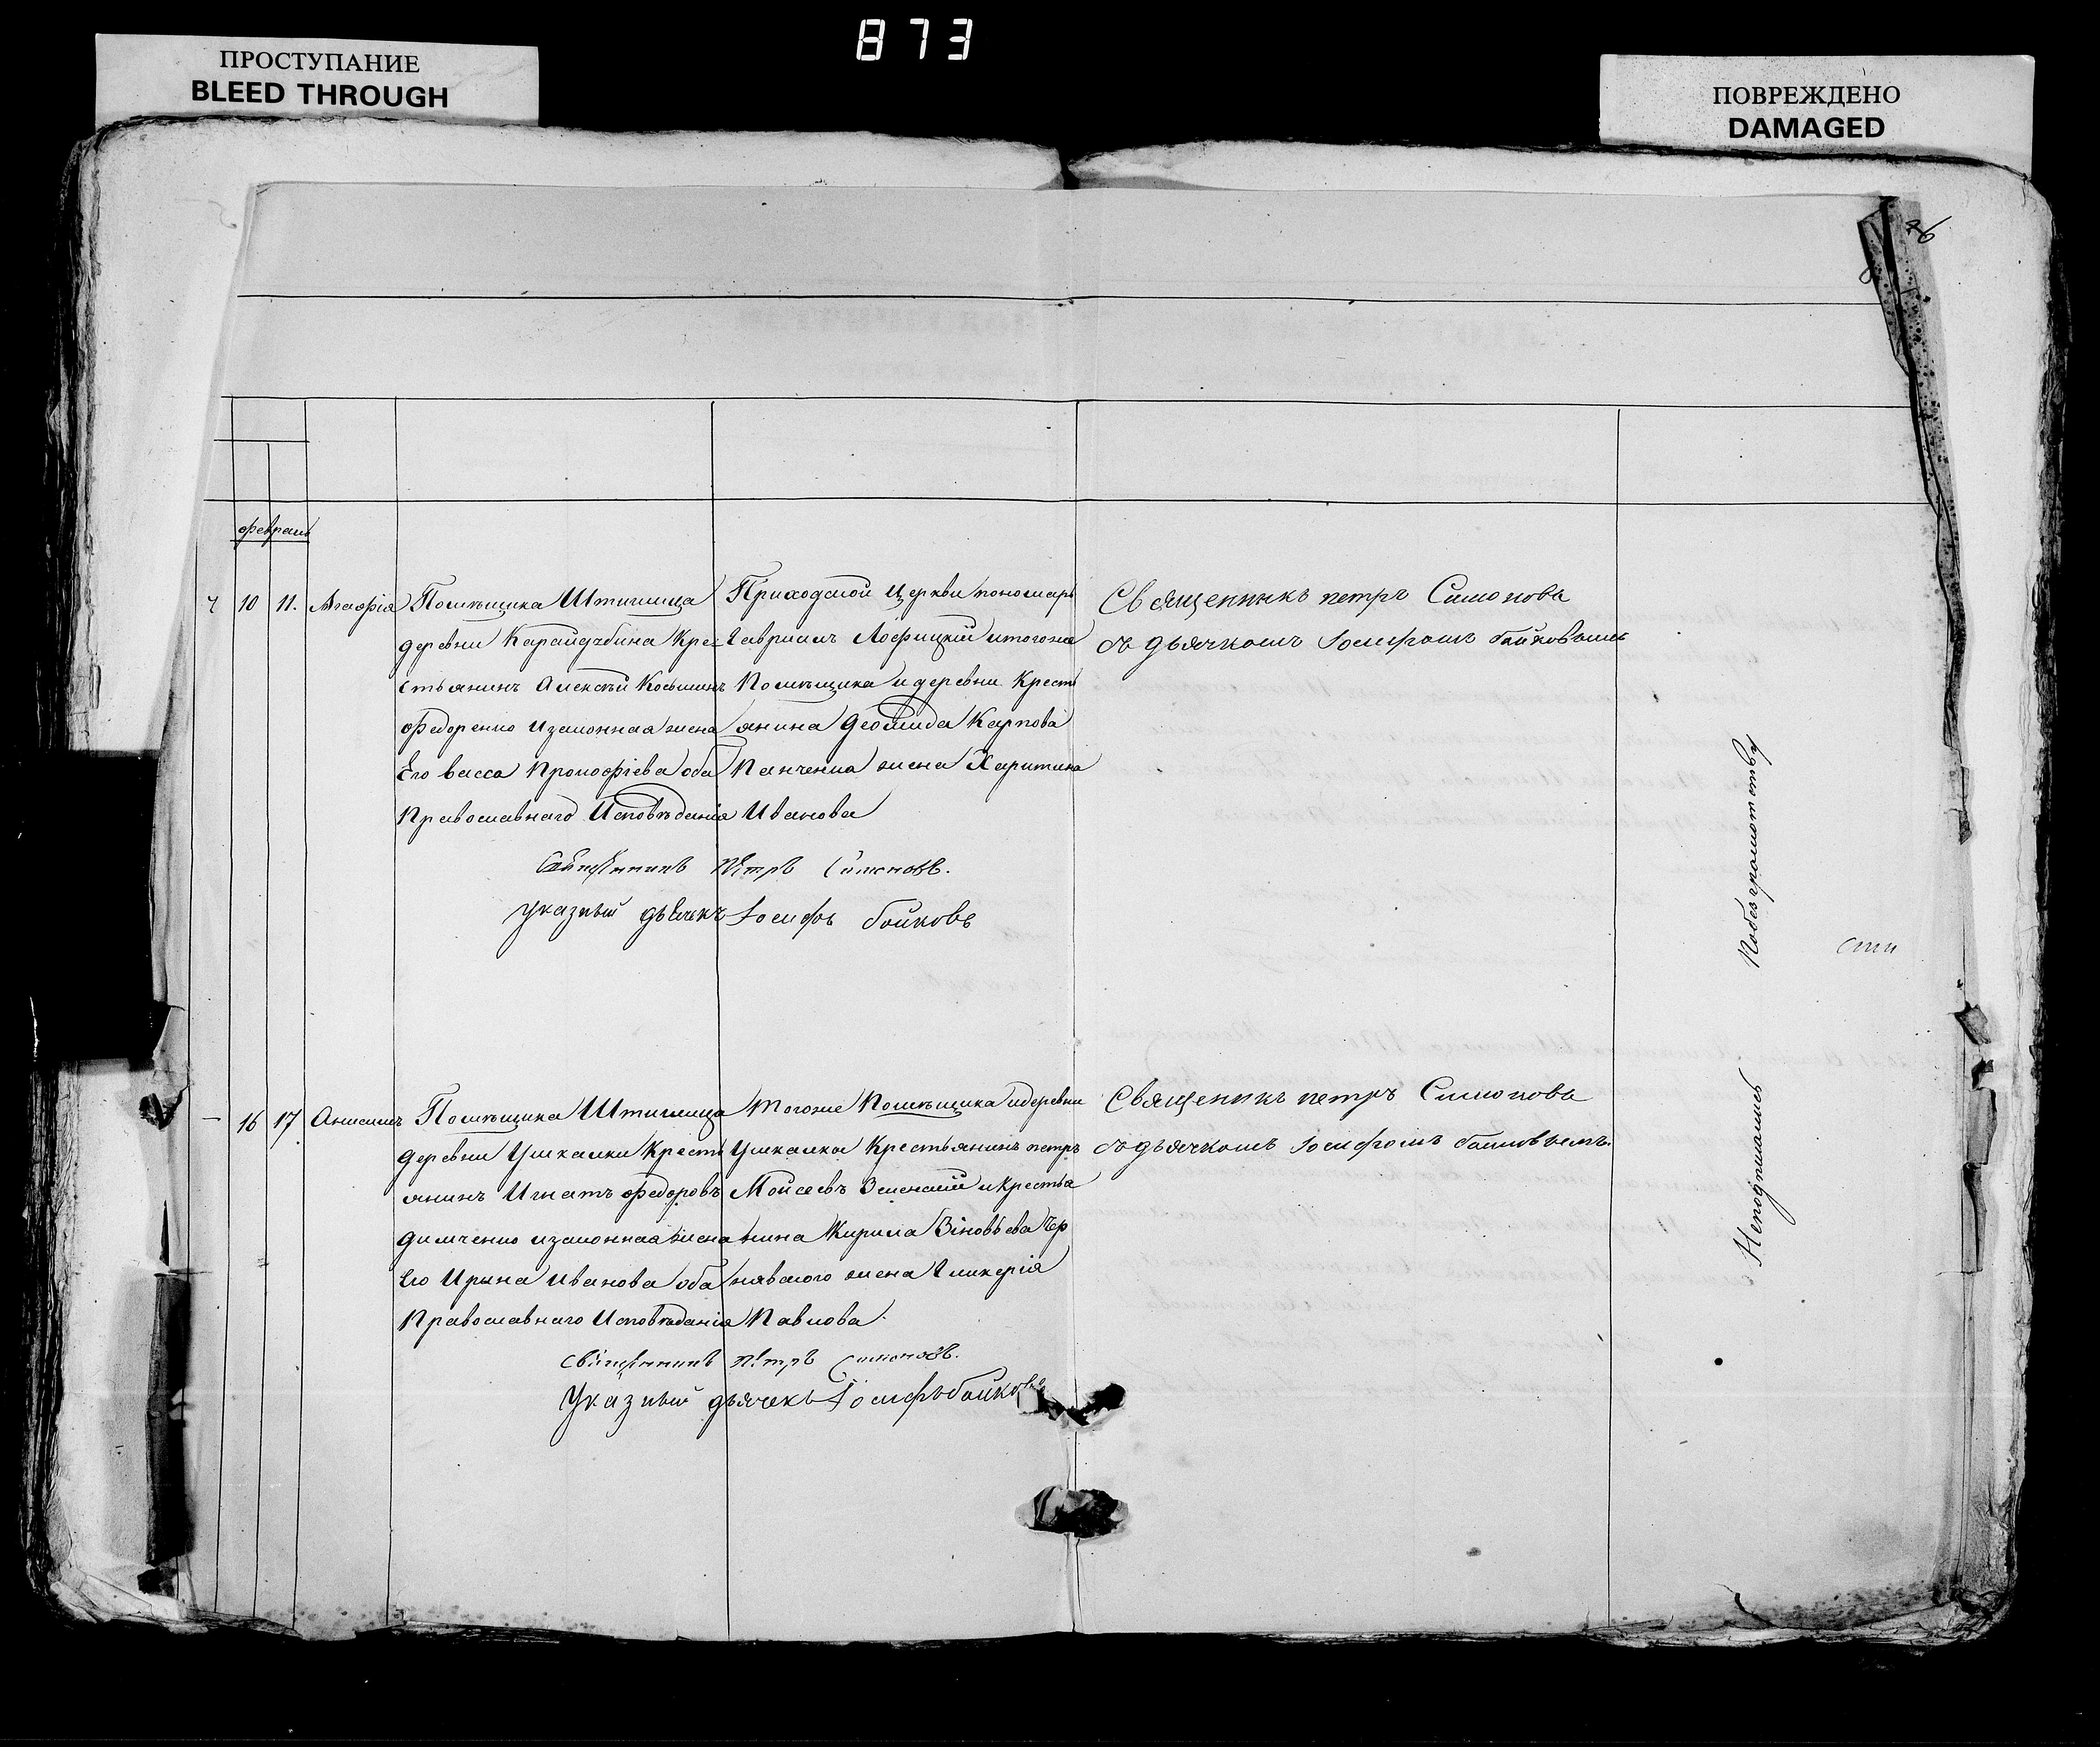 873
ПРОСТУПАНИЕ
BLEED THROUGH
ПОВРЕЖДЕНО
DAMAGED
февраль
10 11. Агафія
Помѣщика Штиглица
деревни Карайдубина Кре
стьянинъ Алексѣй Косминъ
Федоренко изаконная жена
Его васса Прокофіева оба
Православнаго Исповѣданія
Приходской Церкви пономарь
Гавриилъ Лофицкій итогоже
Помѣщика идеревни Кресть
янина Деомида Карпова
Панченка жена Харитина
Иванова
Священникъ петръ Симоновъ
съ дьячкомъ Іосифомъ бойковымъ
Священникъ Петръ Симоновъ.
указный дьячекъ Іосифъ бойковъ
Побезграмотству
сти
16 17 Анисимъ
Помѣщика Штиглица
деревни Ушкалки Кресть
янинъ Игнатъ Федоровъ
димченко изаконная жена
Его Ирина Иванова оба
Православнаго Исповѣданія
Тогоже Помѣщика идеревни
Ушкалки Крестьянинъ петръ
Моисеевъ Зеленскій икрестья
нина Кирила Зіновьева Чер
нявского жена Гликерія
Павлова.
Священикъ петръ Симоновъ
съ дьячкомъ Іосифомъ бойковымъ.
Священникъ Петръ Симоновъ.
Указный дьячекъ Іосифъ бойковъ
Неподписались